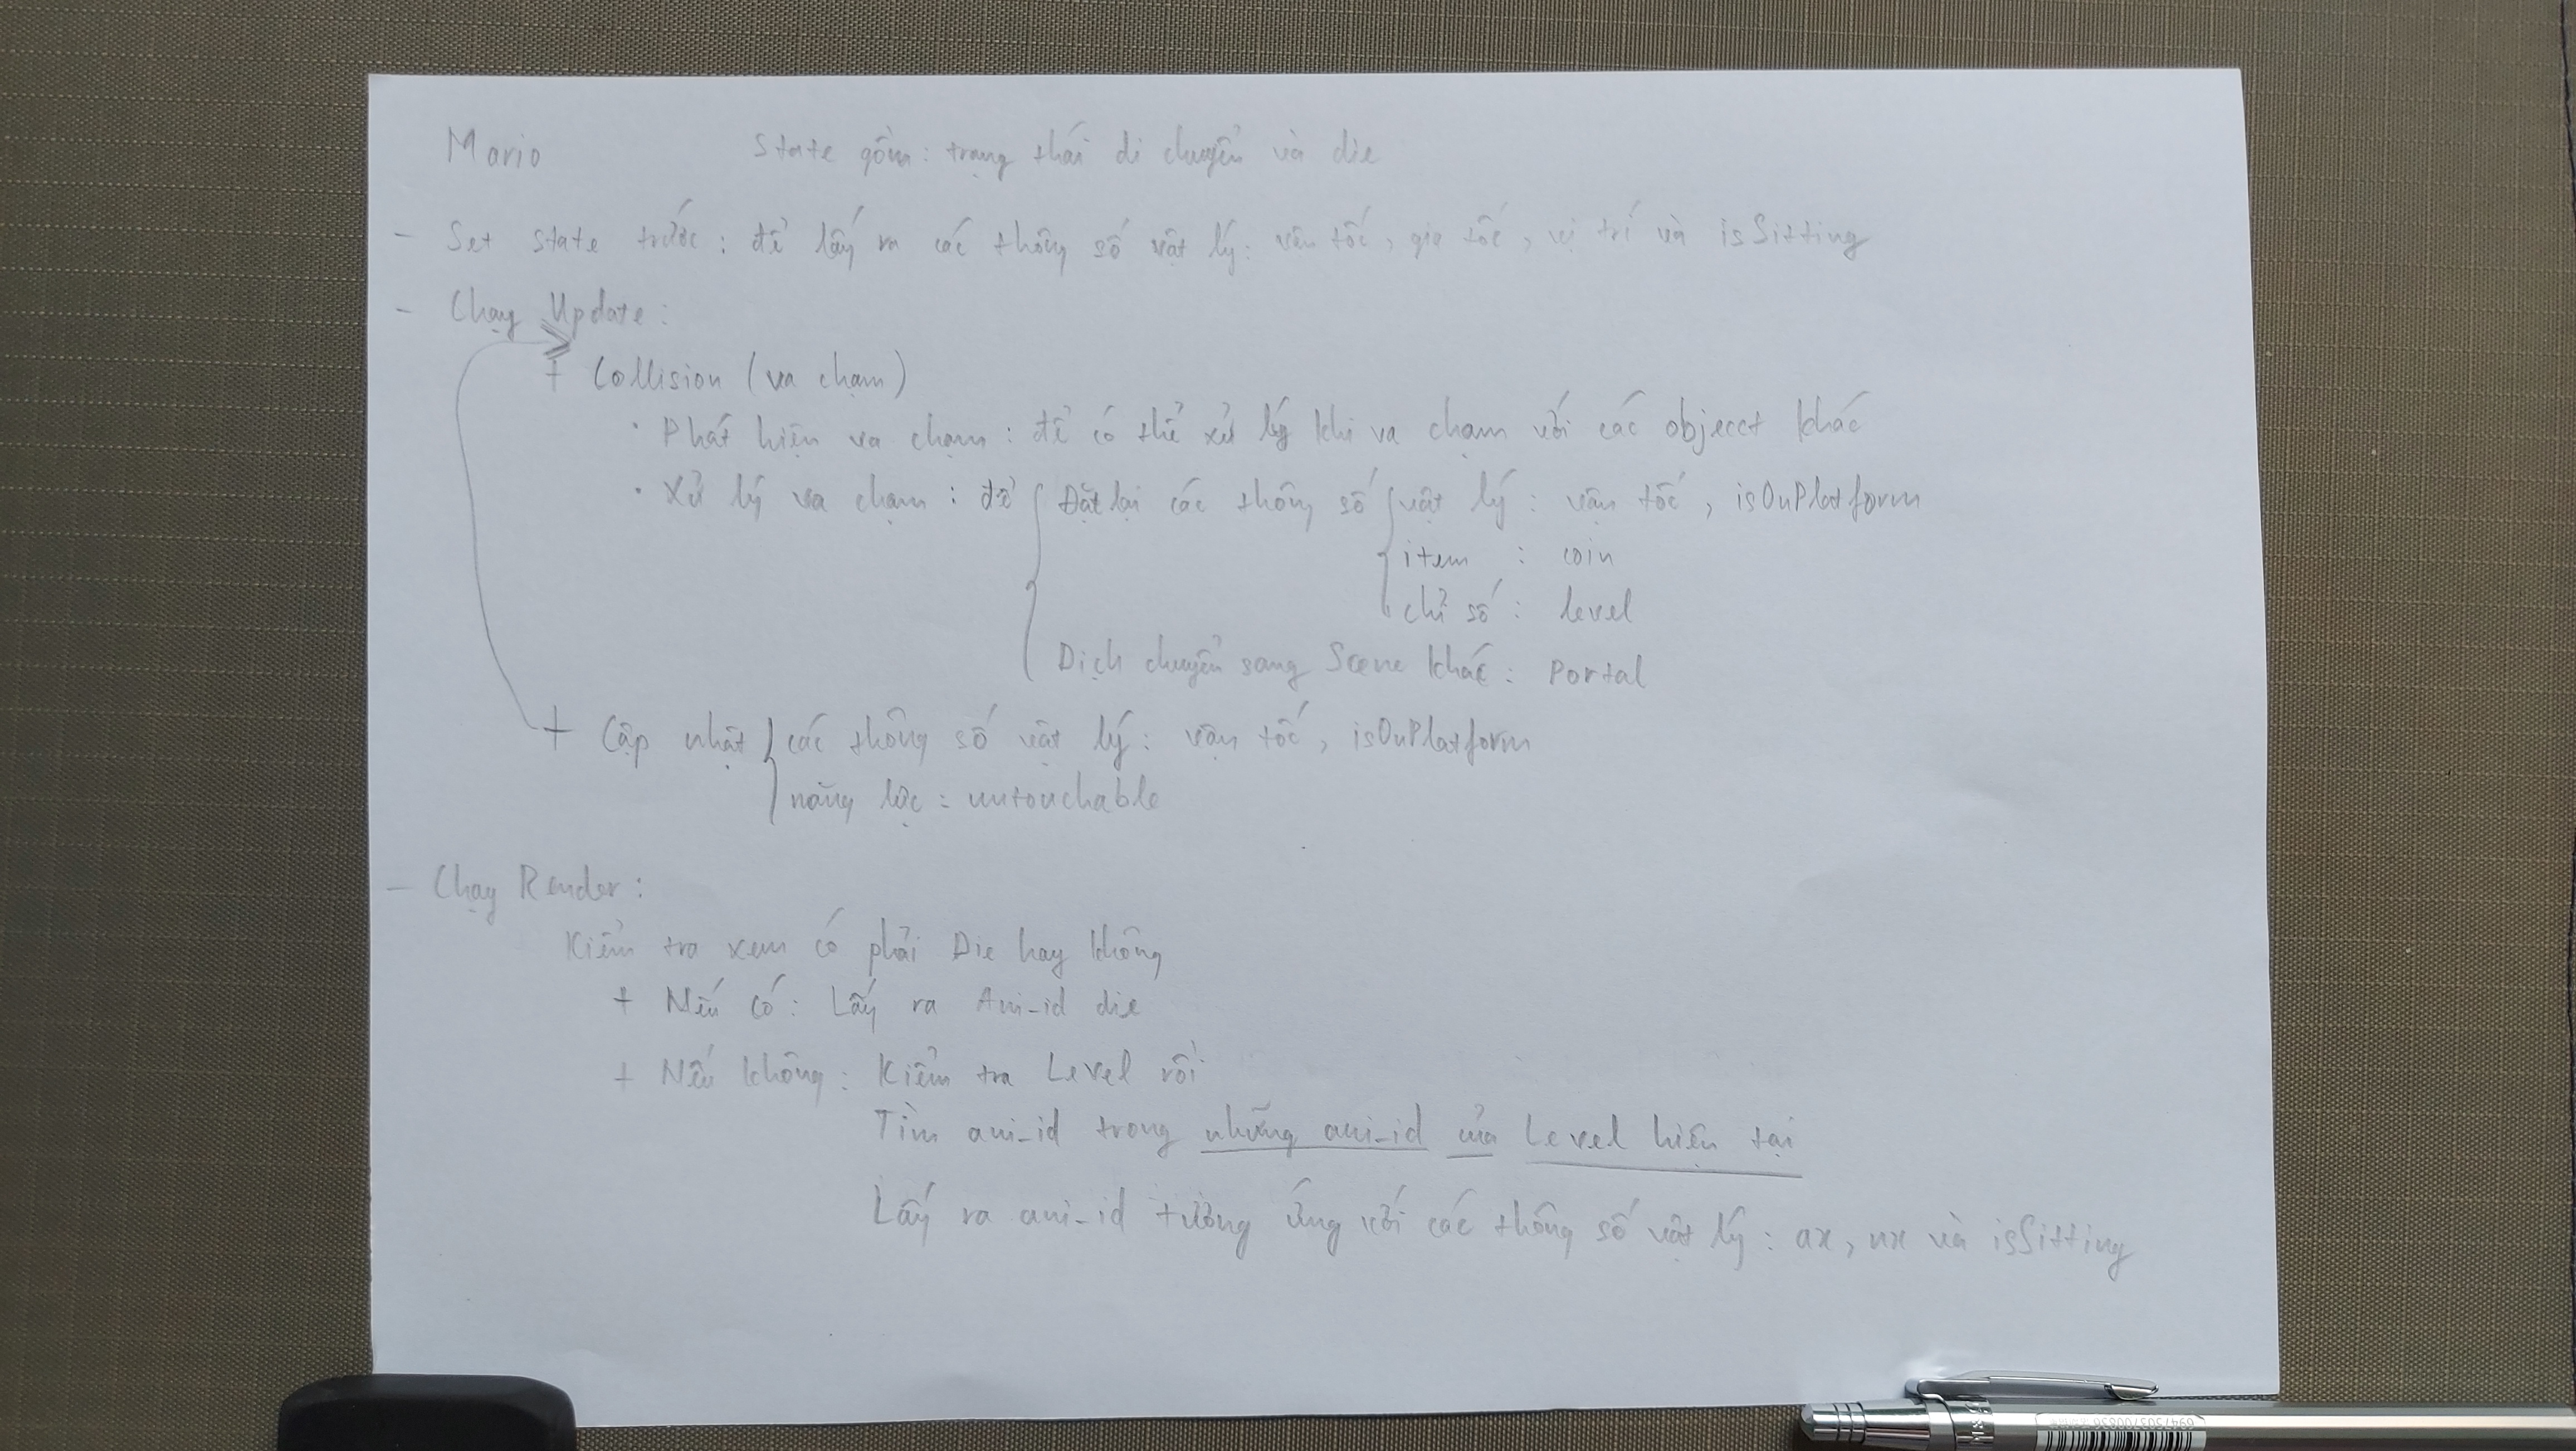 Mario State gồm: trạng thái di chuyển và die
- Set state trước: để lấy ra các thông số vật lý: vận tốc, gia tốc, vị trí và isSitting
- Chạy Update:
+ Collision (va chạm)
· Phát hiện va chạm: để có thể xử lý khi va chạm với các objecct khác
· Xử lý va chạm: để { Đặt lại các thông số { vật lý: vận tốc, isOnPlatform
item : coin
chỉ số: level
Dịch chuyển sang Scene khác: Portal
+ Cập nhật { các thông số vật lý: vận tốc, isOnPlatform
năng lực: untouchable
- Chạy Render:
Kiểm tra xem có phải Die hay không
+ Nếu có: Lấy ra Ani_id die
+ Nếu không: Kiểm tra Level rồi
Tìm ani_id trong những ani_id của Level hiện tại
Lấy ra ani_id tương ứng với các thông số vật lý: ax, nx và isSitting